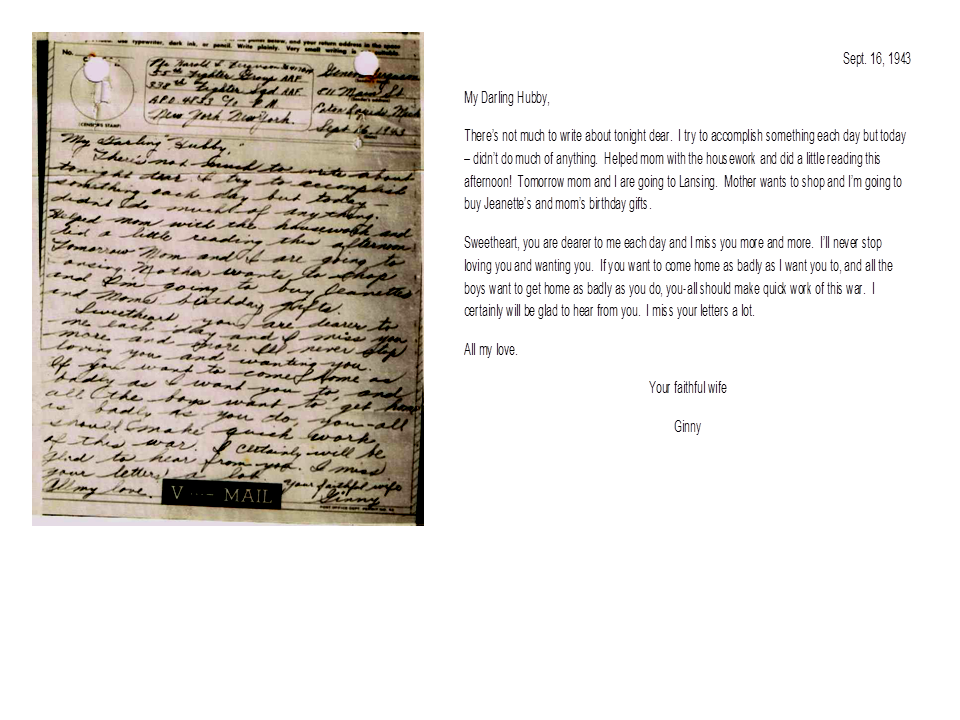 Use typewriter, dark ink, or pencil. Write plainly. Very small writing is
No.
CENSOR'S STAMP
Harold L. Ferguson
55th Fighter Group AAF
338th Fighter Sqd AAF
APO 4833 c/o P.M.
New York New York.
Ferguson
811 Main St
Eaton Rapids Mich
Sept 16, 1943
My Darling Hubby,
There's not much to write about
tonight dear I try to accomplish
something each day but today –
didn't do much of anything.
Helped mom with the housework and
did a little reading this afternoon
Tomorrow Mom and I are going to
Lansing. Mother wants to shop
and I'm going to buy Jeanettes
and Moms birthday gifts.
Sweetheart you are dearer to
me each day and I miss you
more and more. I'll never stop
loving you and wanting you
If you want to come home as
badly as I want you to and
all the boys want to get home
as badly as you do, you-all
should make quick work
of this war. I certainly will be
glad to hear from you. I miss
your letters a lot.
All my love.
Your faithful wife
Ginny
V ···– MAIL
Sept. 16, 1943
My Darling Hubby,
There's not much to write about tonight dear. I try to accomplish something each day but today
– didn't do much of anything. Helped mom with the housework and did a little reading this
afternoon! Tomorrow mom and I are going to Lansing. Mother wants to shop and I'm going to
buy Jeanette's and mom's birthday gifts.
Sweetheart, you are dearer to me each day and I miss you more and more. I'll never stop
loving you and wanting you. If you want to come home as badly as I want you to, and all the
boys want to get home as badly as you do, you-all should make quick work of this war. I
certainly will be glad to hear from you. I miss your letters a lot.
All my love.
Your faithful wife
Ginny